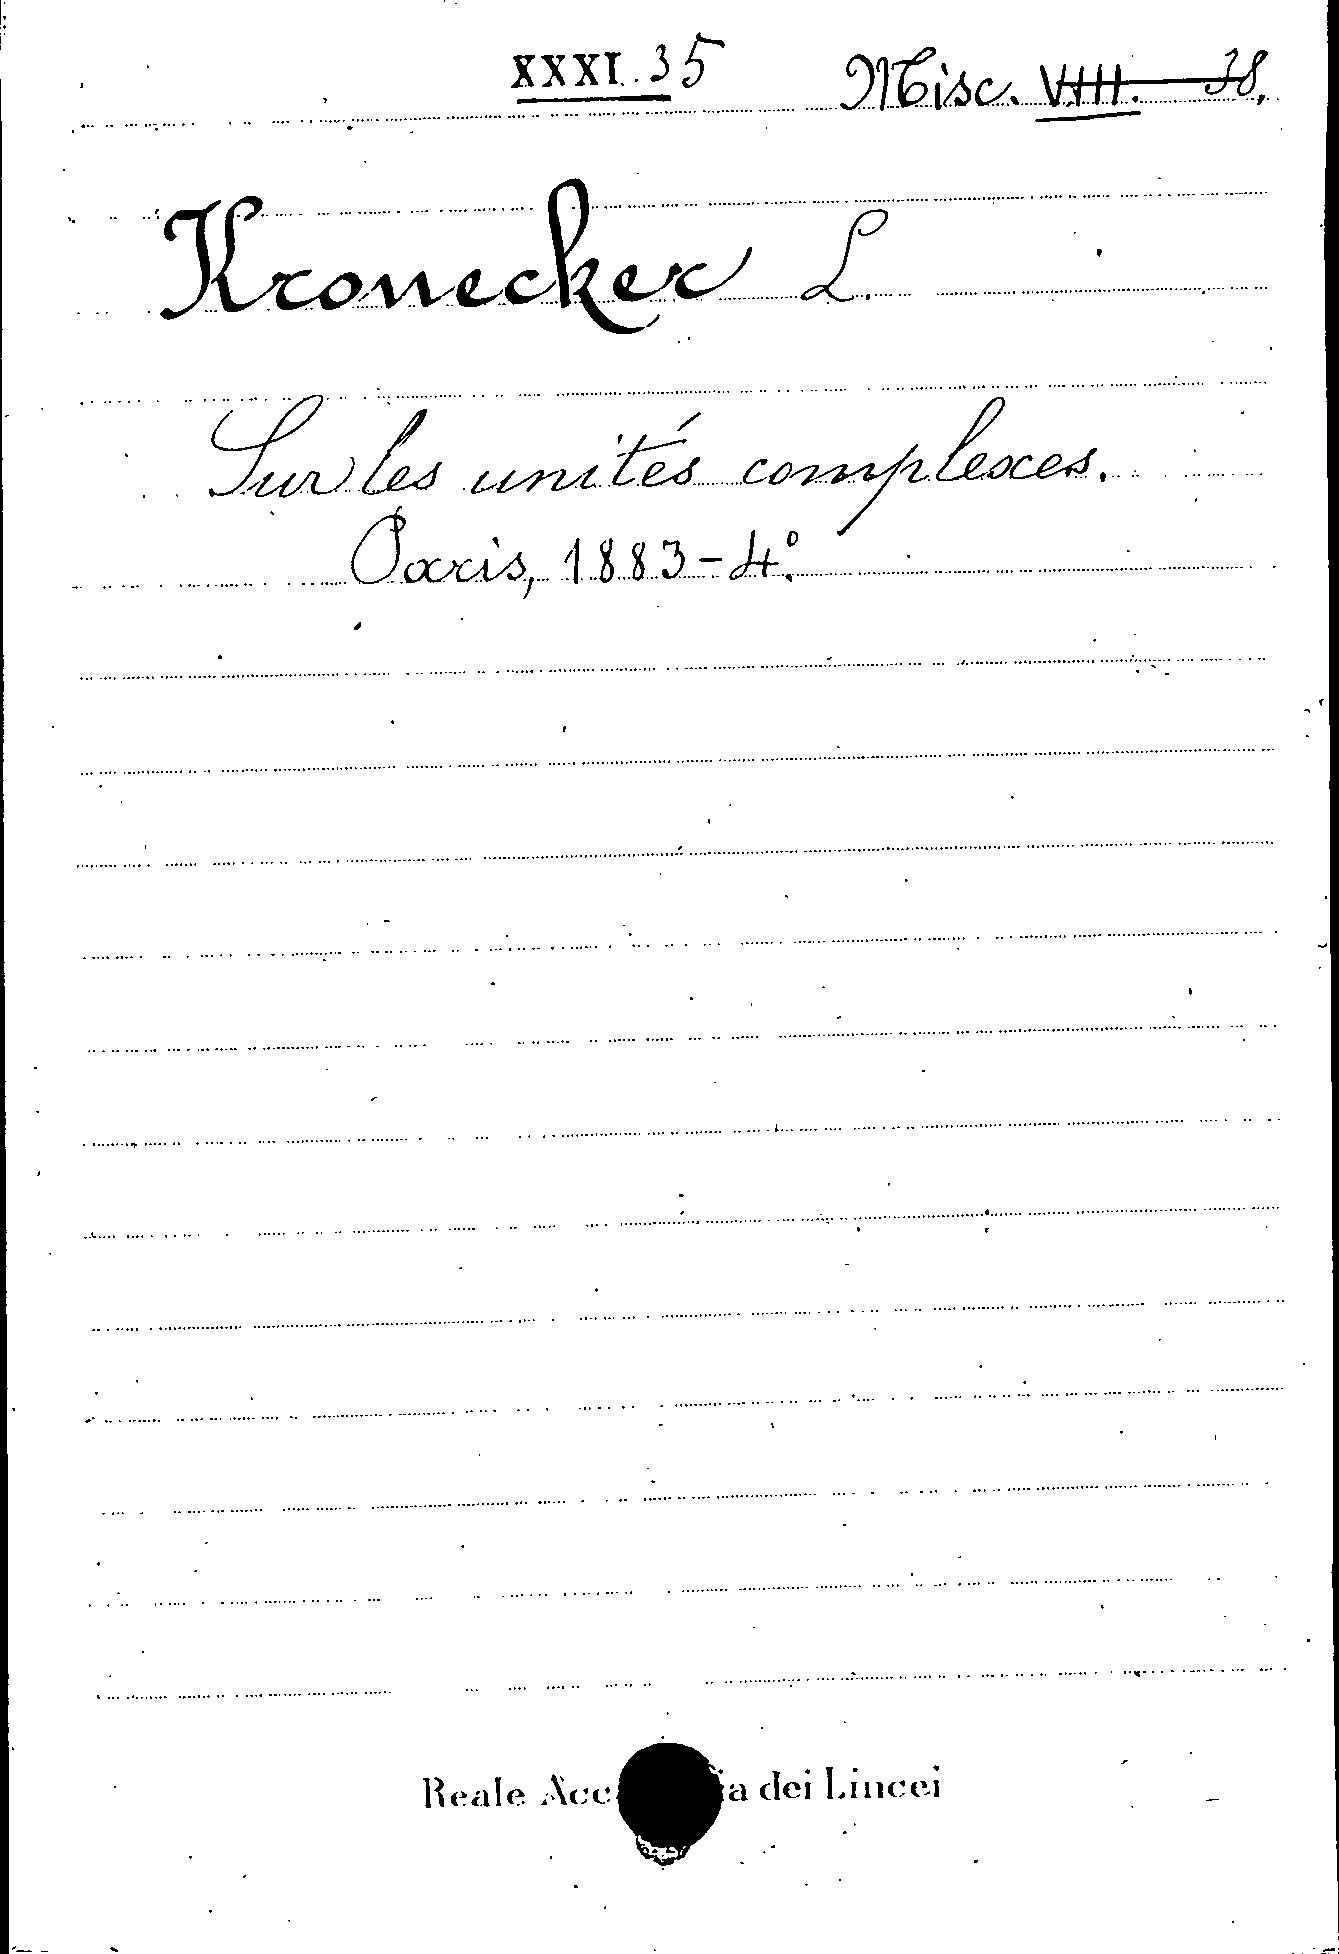 XXXI. 35 Misc. VIII. 38.
Kronecker L.
Sur les unités complexes.
Paris, 1883 - 4.º
Reale Acc ia dei Lincei